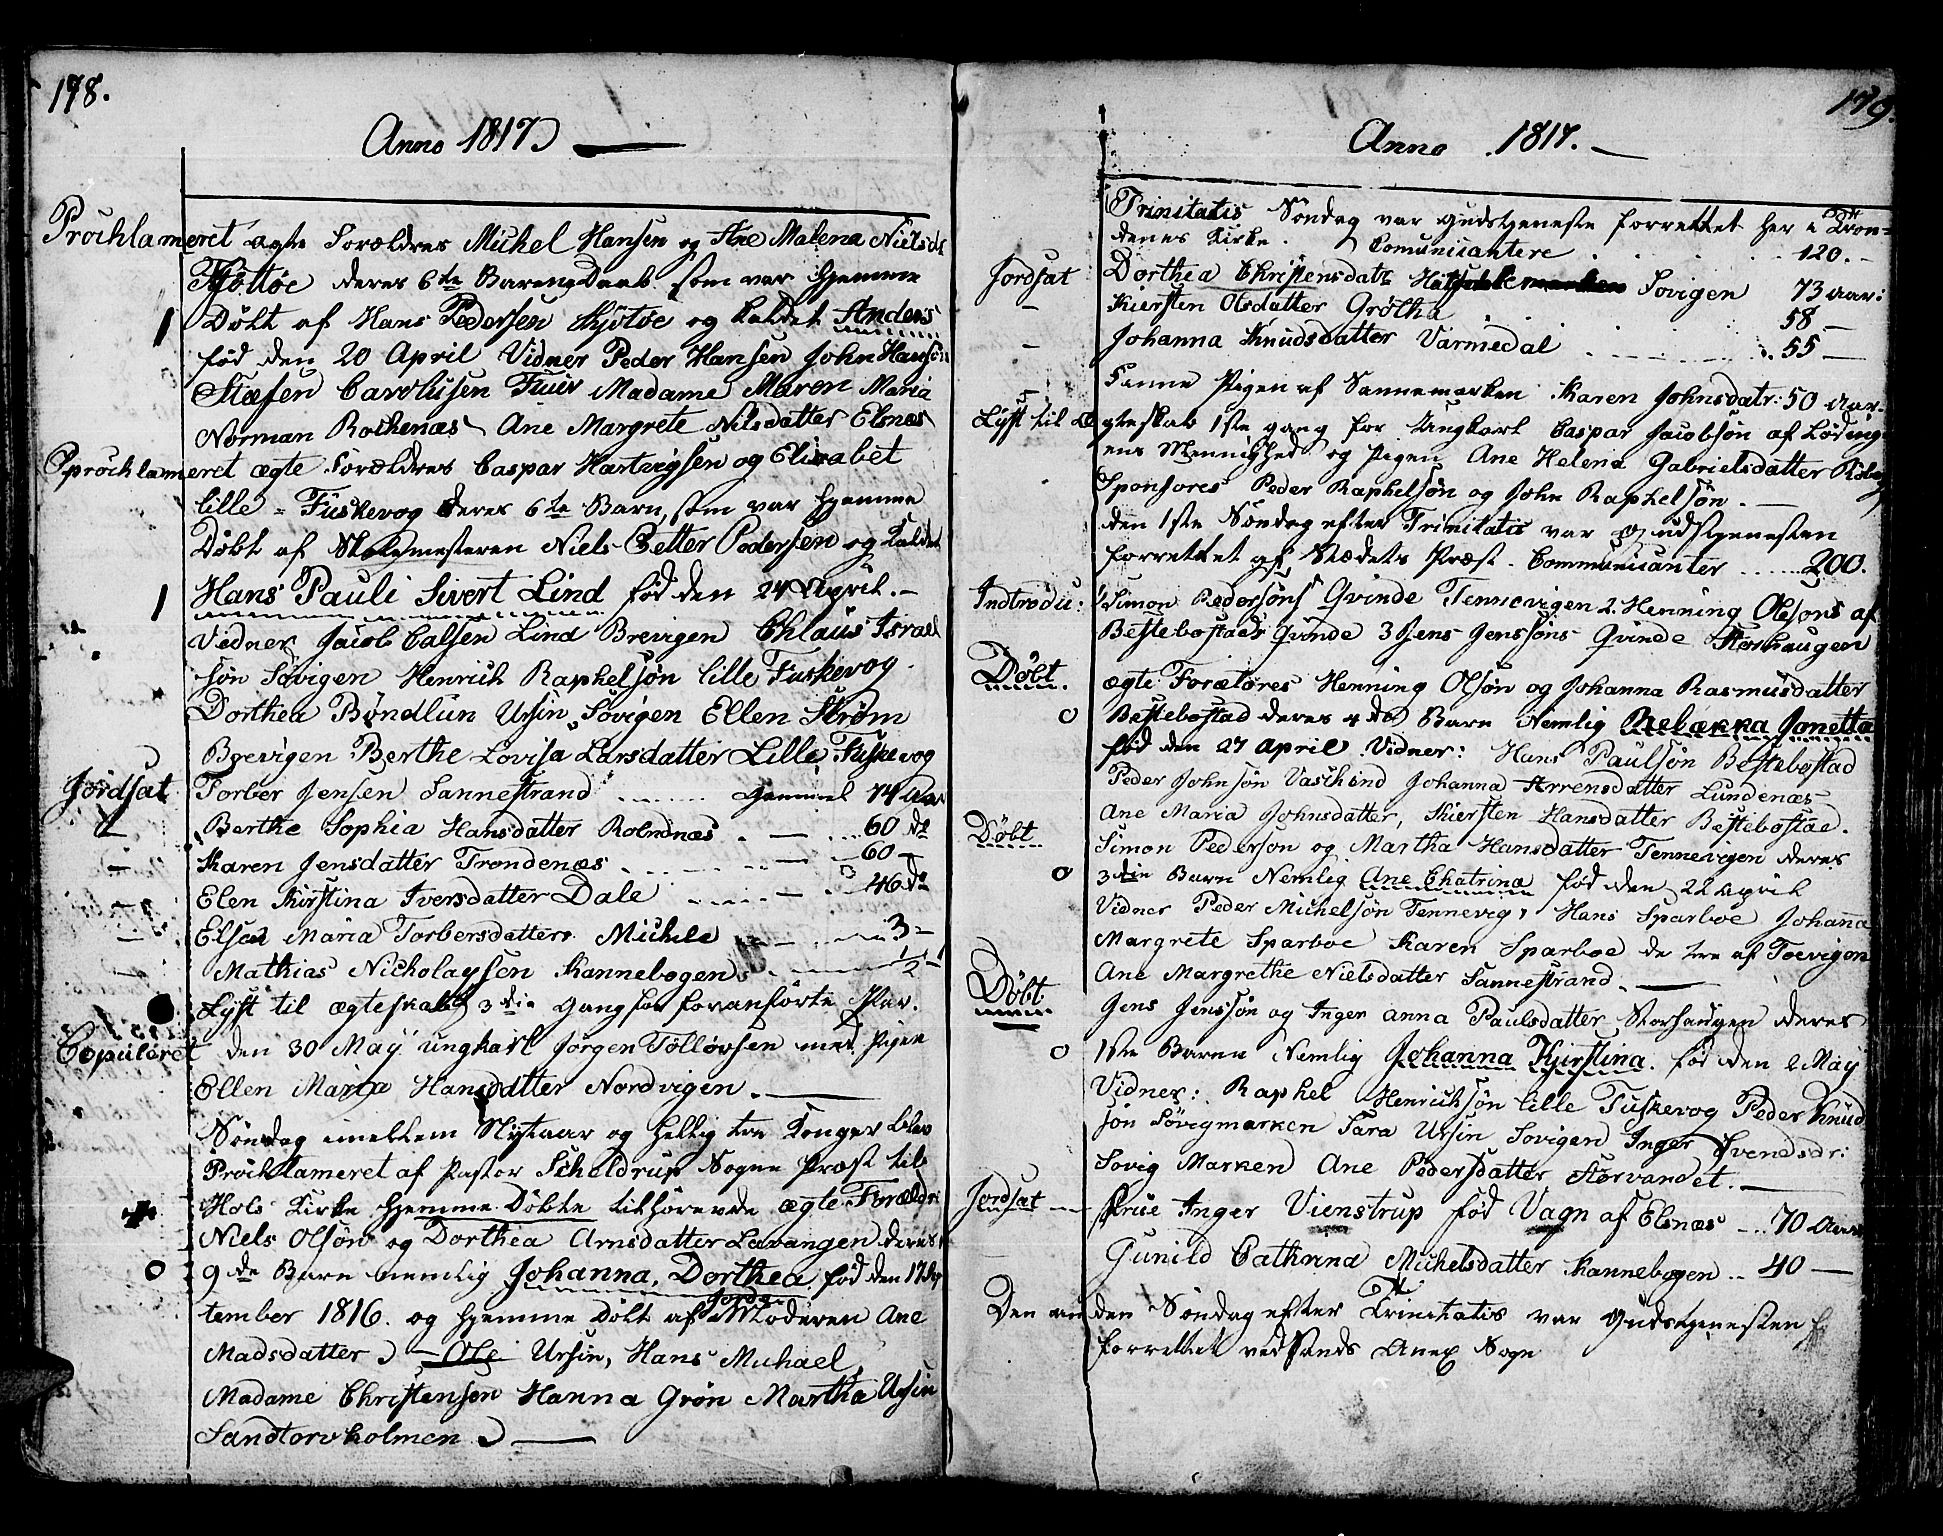 178.
Anno 1817
Prochlameret ægte Forældres Michel Hansen og Ane Malena Nielsd:
Kjøttøe deres 6te Barn Daab som var hjemme
Døbt af Hans Pedersen Kjøtøe og Kaldet Anders
fød den 20 April Vidner Peder Hansen John Hansøn
Stæfen Carolusen Madame Maren Maria
Norman Rokenæs Ane Margrete Nilsdatter Elsnæs
prochlameret ægte Forældres Caspar Hartvigsen og Elisabet
lille = Fuskevog deres 6te Barn, som var hjemme
Døbt af Skolemesteren Niels Petter Pedersen og Kaldet
Hans Pauli Sivert Lind fød den 24 April. –
Vidner Jacob Calsen Lind Brevigen Chlaus Israel
søn Søvigen Henrich Raphelsøn lille Fuskevog
Dorthea Bøndlun Ursin Søvigen Ellen Strøm
Brevigen Berthe Lovisa Larsdatter Lille Fuskevog
Jordsat Torber Jensen Sannestrand gammel 74 Aar
– Berthe Sophia Hansdatter Rolndnæs 60 do
– Karen Jensdatter Trondenæs 60 –
– Elen Kirstina Iversdatter Dale 46 do
– Elsen Maria Torbersdatter Michele 3 –
Mathias Nicholaysen Kannebogen 1/2 –
Lyst til ægteskab 3die Gang for foranførte Par.
Copuleret den 30 May ungkarl Jørgen Tølløvsen med Pigen
Ellen Maria Hansdatter Nordvigen. –
Søndag imellem Nytaar og hellig tre Konger blev
Prochlameret af Pastor Scheldrup Sogne Præst til
Hols Kirke hjemme Døbte tilhørende ægte Forældre
Niels Olsøn og Dorthea Arnsdatter Lavangen deres
9de Barn nemlig Johanna Dorthea fød den 17 Sep
tember 1816. og hjemme Døbt af Jorde Moderen Ane
Madsdatter – Ole Ursin, Hans Michael,
Madame Christensen Hanna Grøn Martha Ursin
Sandtorvholmen –
179.
Anno 1817. –
Trinitatis Søndag var gudstjeneste forrettet her i Tron=
denes Kirke. Comunicantere 120. –
Jordsat Dorthea Christensdatt Sovigen 73 Aar:
– Kiersten Olsdatter Grøtha 58 –
– Johanna Knudsdatter Varmedal 55 –
Samme Pigen af Sannemarken Karen Johnsdatr: 50 Aar.
Lyst til Ægteskab 1ste gang for Ungkarl Caspar Jacobsøn af Løding
ens Mennighed og Pigen Ane Helena Gabrielsdatter
Sponsores Peder Raphelsøn og John Raphelsøn. –
den 1ste Søndag efter Trinitatis var Gudstjenesten
forrettet af Stædets Præst. Communicanter 200.
Indtrodu: 1/ Simon Pedersøns Qvinde Tennevigen 2. Henning Olsons af
Bestebostads Qvinde 3 Jens Jenssøns Qvinde Storhaugen
Døbt. ægte Forætøres Henning Olsøn og Johanna Rasmusdatter
Bestebostad deres 4de Barn Nemlig Rebækka Jonetta
fød den 27 April Vidner: Hans Paulsøn Bestebostad
Peder Johnsøn Johanna Arrensdatter Lundenæs
Ane Maria Johnsdatter, Kiersten Hansdatter Bestebostad.
Døbt Simon Pederson og Martha Hansdatter Tennevigen deres
3die Barn Nemlig Ane Chatrina fød den 22 April
Vidner Peder Michelsøn Tennevig, Hans Sparboe Johanna
Margrete Sparboe Karen Sparboe de tre af Toevigen
Ane Margrethe Nielsdatter Sannestrand. –
Døbt Jens Jenssøn og Inger anna Paulsdatter Storhaugen deres
1ste Barn Nemlig Johanna Kjirstina. fød den 2 May
Vidner: Raphel Henrichsøn lille Fuskevog Peder Knud
søn Søvigmarken Sara Ursin Sovigen Inger Svendsdr:
Sovig Marken Ane Pedersdatter Størvandet. –
Jordsat – Frue Inger Vienstrup fød Vagn af Elsnæs 70 Aar
Gunild Cathrina Michelsdatter Kannebogen 40 –
Den anden Søndag efter Trinitatis var Gudstjenesten
forrettet ved Sands Anex Sogn